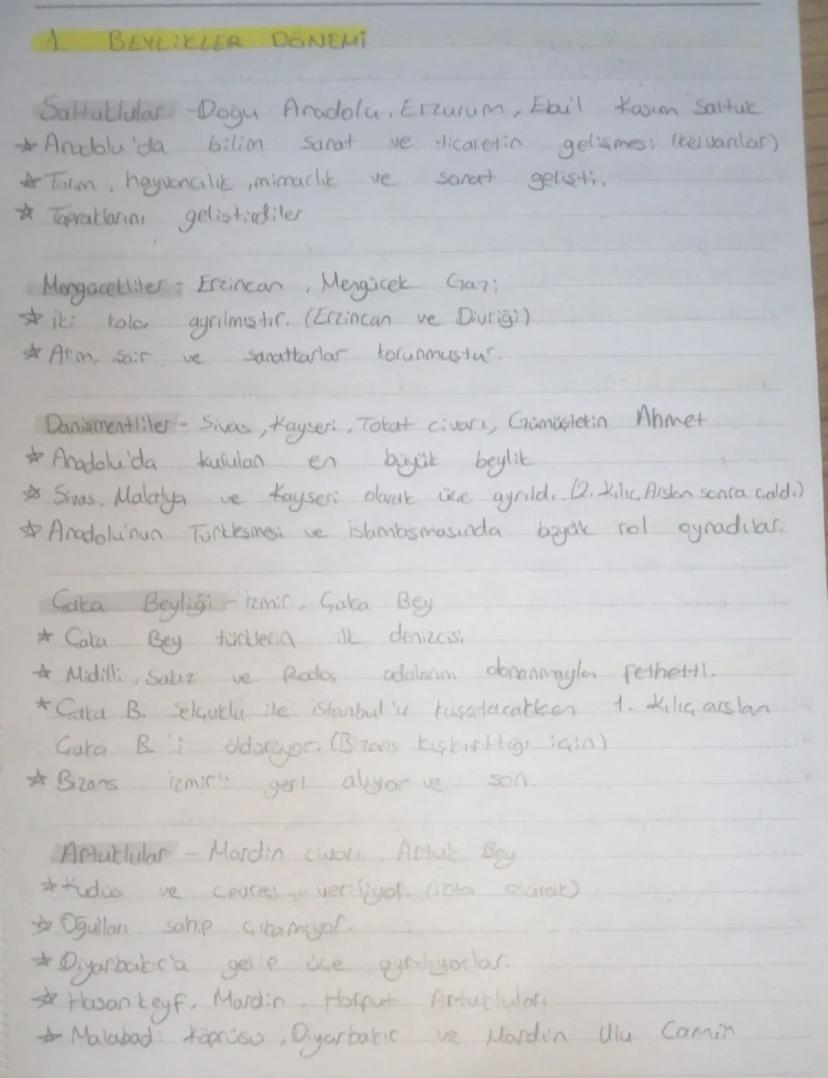 1. BEYLİKLER DÖNEMİ
Saltuklular - Doğu Anadolu, Erzurum, Ebul Kasım Saltuk
* Anadolu'da bilim sanat ve ticaretin gelişmesi (kervanlar)
* Tarım, hayvancılık, mimarlık ve sanat gelişti.
* Topraklarını geliştirdiler
Mengücekliler - Erzincan, Mengücek Gazi
* İki kola ayrılmıştır. (Erzincan ve Divriği)
* şair ve sanatkarlar korunmuştur.
Danişmentliler - Sivas, Kayseri, Tokat civarı, Gümüştekin Ahmet
* Anadolu'da kurulan en büyük beylik
* Sivas, Malatya ve Kayseri olarak üçe ayrıldı. (2. Kılıç Arslan sonra aldı.)
* Anadolu'nun Türkleşmesi ve islamlaşmasında büyük rol oynadılar.
Çaka Beyliği - İzmir, Çaka Bey
* Çaka Bey türklerin ilk denizcisi
* Midilli, Sakız ve Rodos adalarını donanmayla fethetti.
* Çaka B. Selçuklu ile istanbul'u kuşatacakken 1. Kılıç arslan
Çaka B.'i öldürüyor. (Bizans kışkırttığı için)
* Bizans izmir'i geri alıyor ve son.
Artuklular - Mardin civarı, Artuk Bey
* Kudüs ve çevresi veriliyor. (ikta olarak)
* Oğulları sahip çıkamıyor.
* Diyarbakır'a gelip üçe ayrılıyorlar.
* Hasankeyf, Mardin, Harput Artukluları
* Malabadi Köprüsü, Diyarbakır ve Mardin Ulu Camin